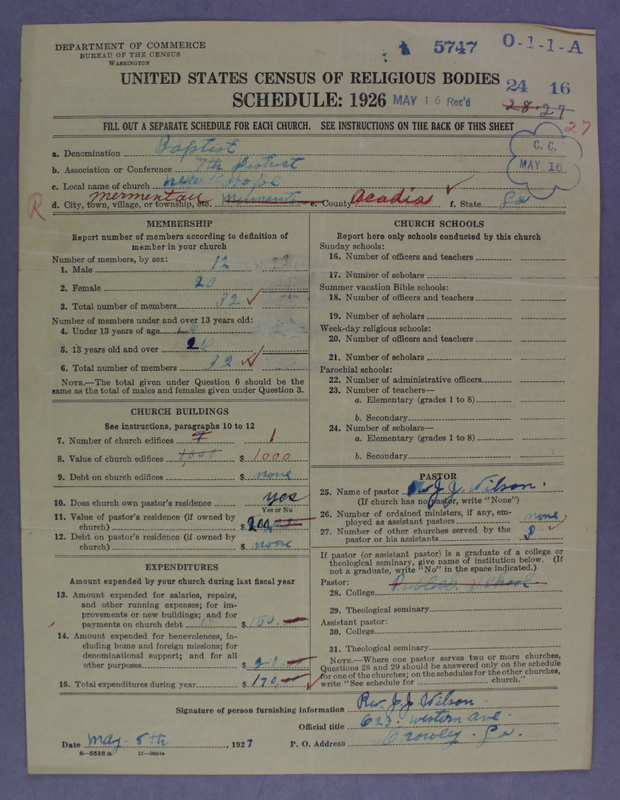 DEPARTMENT OF COMMERCE
BUREAU OF THE CENSUS
WASHINGTON
5747 O-1-1-A
UNITED STATES CENSUS OF RELIGIOUS BODIES
24 16
SCHEDULE: 1926 MAY 16 Rec'd
28-27
27
FILL OUT A SEPARATE SCHEDULE FOR EACH CHURCH. SEE INSTRUCTIONS ON THE BACK OF THIS SHEET
C. C.
MAY 16
a. Denomination Baptist
b. Association or Conference 7th District
c. Local name of church new Hope
R d. City, town, village, or township, etc. mermentau e. County Acadia f. State La
MEMBERSHIP
Report number of members according to definition of
member in your church
Number of members, by sex:
1. Male 12
2. Female 20
3. Total number of members 32
Number of members under and over 13 years old:
4. Under 13 years of age
5. 13 years old and over
6. Total number of members
NOTE.—The total given under Question 6 should be the
same as the total of males and females given under Question 3.
CHURCH BUILDINGS
See instructions, paragraphs 10 to 12
7. Number of church edifices 1 1
8. Value of church edifices 1,000 $ 1000
9. Debt on church edifices $ none
10. Does church own pastor's residence yes
Yes or No
11. Value of pastor's residence (if owned by
church) $
12. Debt on pastor's residence (if owned by
church) $ none
EXPENDITURES
Amount expended by your church during last fiscal year
13. Amount expended for salaries, repairs,
and other running expenses; for im-
provements or new buildings; and for
payments on church debt $ 150.
14. Amount expended for benevolences, in-
cluding home and foreign missions; for
denominational support; and for all
other purposes $ 20
15. Total expenditures during year $ 170
CHURCH SCHOOLS
Report here only schools conducted by this church
Sunday schools:
16. Number of officers and teachers
17. Number of scholars
Summer vacation Bible schools:
18. Number of officers and teachers
19. Number of scholars
Week-day religious schools:
20. Number of officers and teachers
21. Number of scholars
Parochial schools:
22. Number of administrative officers
23. Number of teachers—
a. Elementary (grades 1 to 8)
b. Secondary
24. Number of scholars—
a. Elementary (grades 1 to 8)
b. Secondary
PASTOR
25. Name of pastor Rev J. J. Wilson.
(If church has no pastor, write "None")
26. Number of ordained ministers, if any, em-
ployed as assistant pastors none
27. Number of other churches served by the
pastor or his assistants
If pastor (or assistant pastor) is a graduate of a college or
theological seminary, give name of institution below. (If
not a graduate, write "No" in the space indicated.)
Pastor:
28. College Public School
29. Theological seminary
Assistant pastor:
30. College
31. Theological seminary
NOTE.—Where one pastor serves two or more churches,
Questions 28 and 29 should be answered only on the schedule
for one of the churches; on the schedules for the other churches,
write "See schedule for church."
Signature of person furnishing information Rev. J. J. Wilson
Official title 623. western ave.
Date May 5th, 1927 P. O. Address Crowley. La.
8—5518a 11—9664a